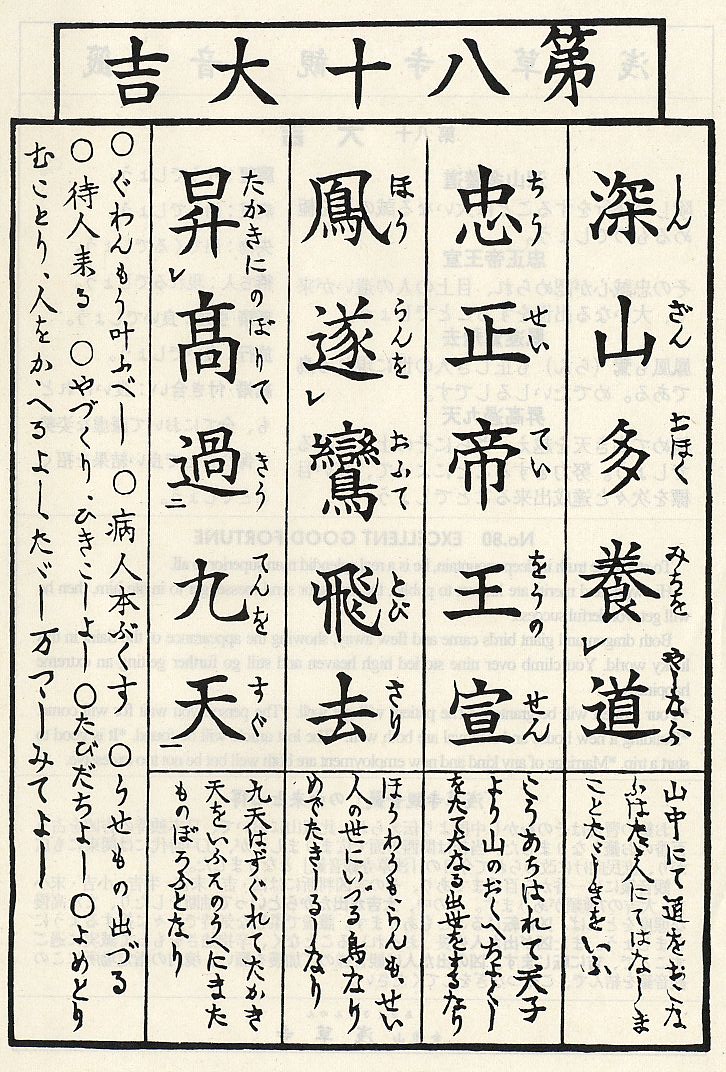 第八十大吉
深山多養道
しんざんおほくみちをやしなふ
山中にて道をおこな
ふはたゞ人にてはなしま
ことたゞしきをいふ
忠正帝王宣
ちうせいていをうのせん
こうあらはれし天子
より山のおくへちよくし
をたて大なる出世をするなり
鳳遂レ鸞飛去
ほうらんをおふてとびさり
ほうわうもらんも、せい
人の世にいづる鳥なり
めでたきしるしなり
昇レ高過二九天一
たかきにのぼりてきうてんをすぐ
九天はすぐれてたかき
天をいふそのうへにまた
ものぼらふとなり
○ぐわんもう叶ふべし ○病人本ぶくす ○うせもの出づる
○待人来る ○やづくり、ひきこしよし ○たびだちよし ○よめとり
むことり、人をかゝへるよしたゞし万つゝしみてよし